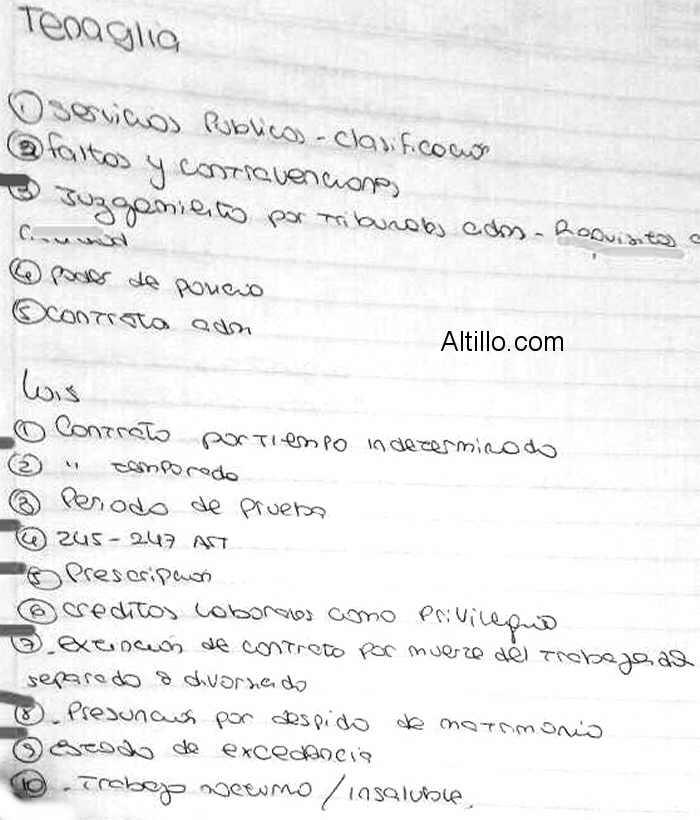 Tenaglia
① Servicios Publicos - clasificacion
② faltas y contravenciones
③ Juzgamiento por tribunales adm - Requisitos
④ poder de policia
⑤ contrato adm
Altillo.com
Luis
① Contrato por tiempo indeterminado
② " temporada
③ Periodo de prueba
④ 245 - 247 ART
⑤ Prescripcion
⑥ creditos laborales como Privilegio
⑦ . extincion de contrato por muerte del trabajador
separado o divorsiado
⑧ . Presuncion por despido de matrimonio
⑨ estado de excedencia
⑩ . Trabajo nocturno / insaluble.